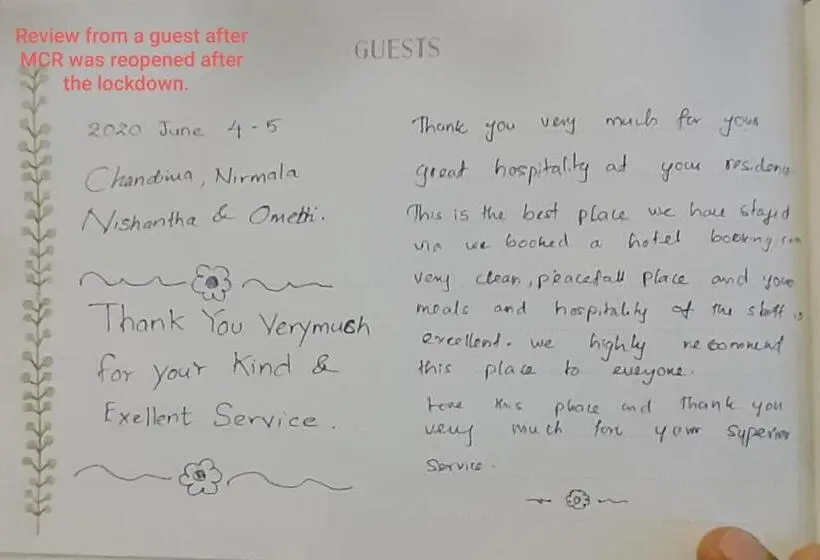 Review from a guest after
MCR was reopened after
the lockdown.
GUESTS
2020 June 4-5
Chandima, Nirmala
Nishantha &
Thank You Verymush
for your Kind &
Exellent Service.
Thank you very much for your
great hospitality at your residence
This is the best place we have stayed
via we booked a hotel booking
very clean, peacefull place and your
meals and hospitality of the staff is
excellent. we highly recommend
this place to everyone.
Love this place and Thank you
very much for your superior
service.